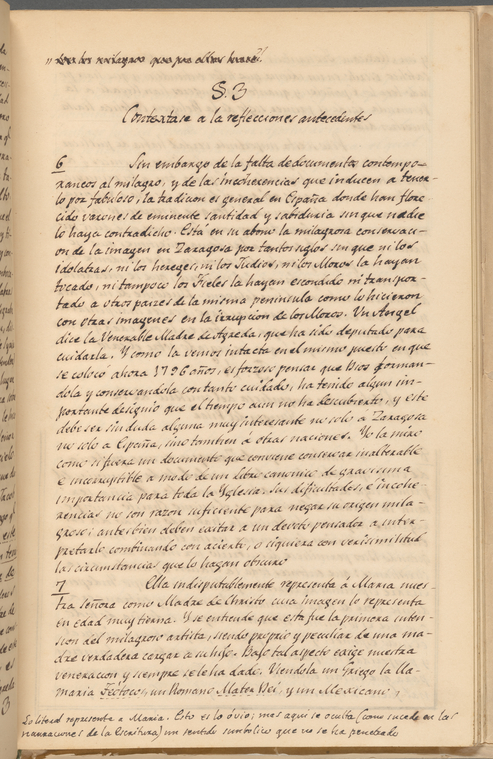 " los milagros que por ellos hacía."
§. 3
Contextase a la reflecciones antecedentes
6 Sin embargo de la falta de documentos contempo-
raneos al milagro, y de las incoherencias que inducen a tener-
lo por fabuloso, la tradicion es general en España donde han flore-
cido varones de eminente santidad y sabiduria sin que nadie
lo haya contradicho. Está en su abono la milagrosa conservaci-
on de la imagen en Zaragosa por tantos siglos sin que ni los
idolatras, ni los hereges, ni los Judios, ni los Moros la hayan
tocado, ni tampoco los Fieles la hayan escondido ni transpor-
tado a otros paizes de la misma peninsula como lo hicieron
con otras imagenes en la irrupcion de los Moros. Un Angel
dice la Venerable Madre de Agreda, que ha sido deputado para
cuidarla. Y como la vemos intacta en el mismo puesto en que
se colocó ahora 1796 años, es forzoso pensar que Dios forman-
dola y conservandola con tanto cuidado, ha tenido algun im-
portante designio que el tiempo aun no ha descubierto, y este
debe ser sin duda alguna muy interesante no solo a Zaragosa
no solo a España, sino tambien a otras naciones. Yo la miro
como si fuera un documento que conviene conservar inalterable
e incorruptible a modo de un libro canonico de gravissima
importancia para toda la Yglesia. Sus dificultades, e incohe-
rencias no son razon suficiente para negar su origen mila-
groso; antes bien deben excitar a un devoto pensador a inter-
pretarlo combinando con acierto, o siquiera con verisimilitud
las circunstancias que lo hagan obscuro
7 Ella indisputablemente representa á Maria nues-
tra señora como Madre de Christo cuia imagen lo representa
en edad muy tierna. Y se entiende que esta fue la primera inten-
sion del milagroso artista, siendo proprio y peculiar de una ma-
dre verdadera cargar a su hijo. Bajo tal aspecto exige nuestra
veneracion y siempre se le ha dado. Viendola un Griego la lla-
maria Teotoco, un Romano, Mater Dei, y un Mexicano,
Lo literal representa a Maria. Esto es lo óvio; mas aqui se oculta (como sucede en las
narraciones de la Escritura) un sentido simbolico que no se ha penetrado